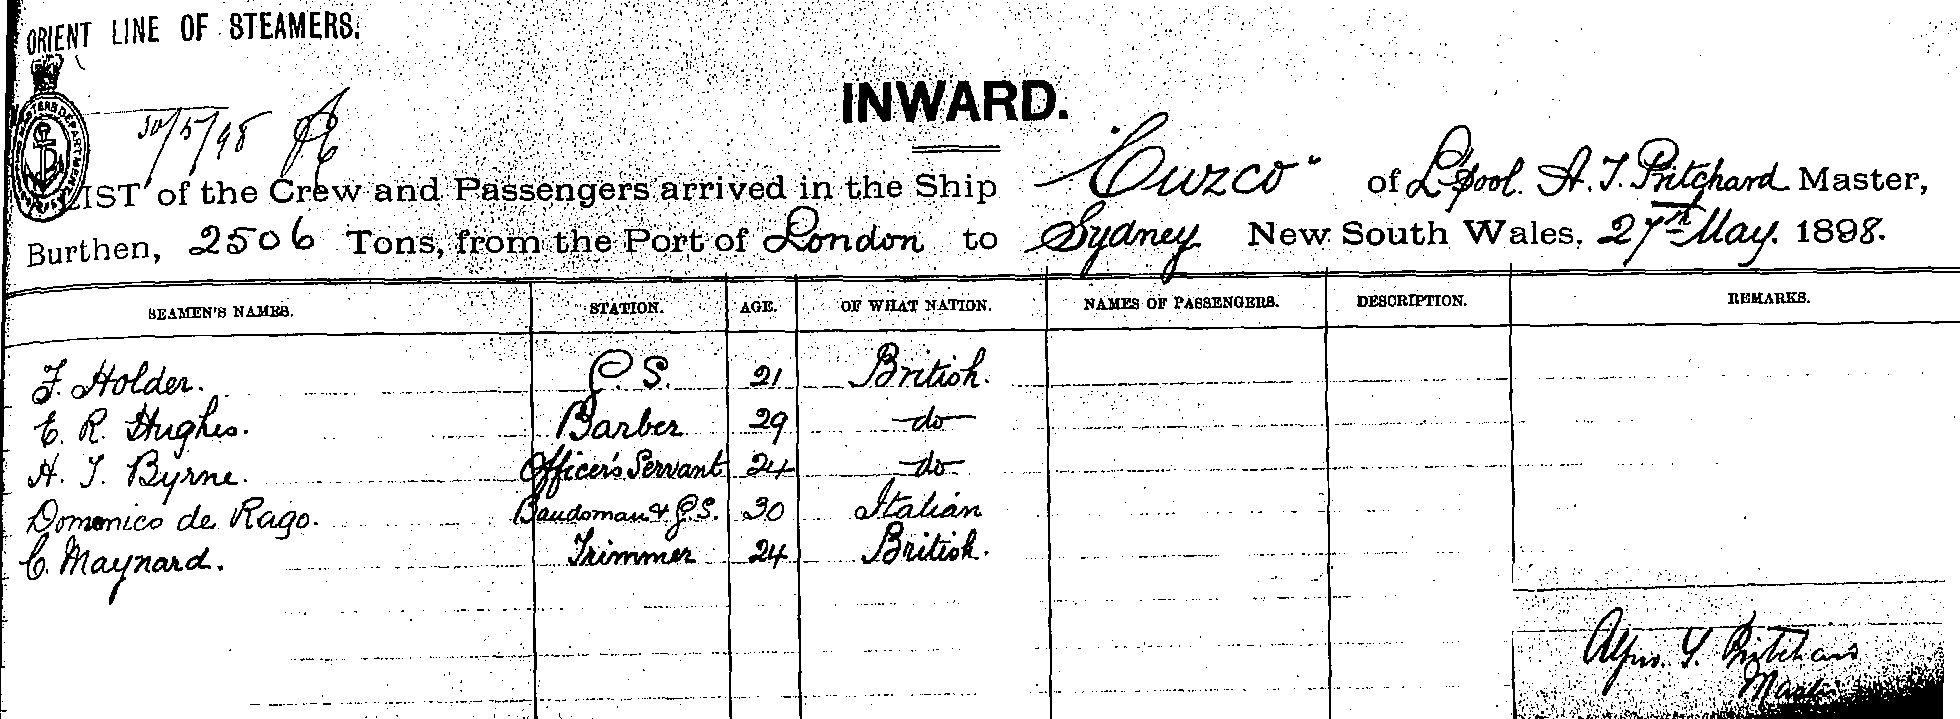 ORIENT LINE OF STEAMERS.
30/5/98
INWARD.
LIST of the Crew and Passengers arrived in the Ship "Cuzco" of L'pool. A. J. Pritchard Master,
Burthen, 2506 Tons, from the Port of London to Sydney New South Wales, 27th May. 1898.
SEAMEN'S NAMES. STATION. AGE. OF WHAT NATION. NAMES OF PASSENGERS. DESCRIPTION. REMARKS.
F. Holder. G.S. 21 British.
E. R. Hughes. Barber 29 do
H. J. Byrne. Officer's Servant 24 do
Domenico de Rago. Bandsman & G.S. 30 Italian
C. Maynard. Trimmer 24 British.
Pritchard
Master